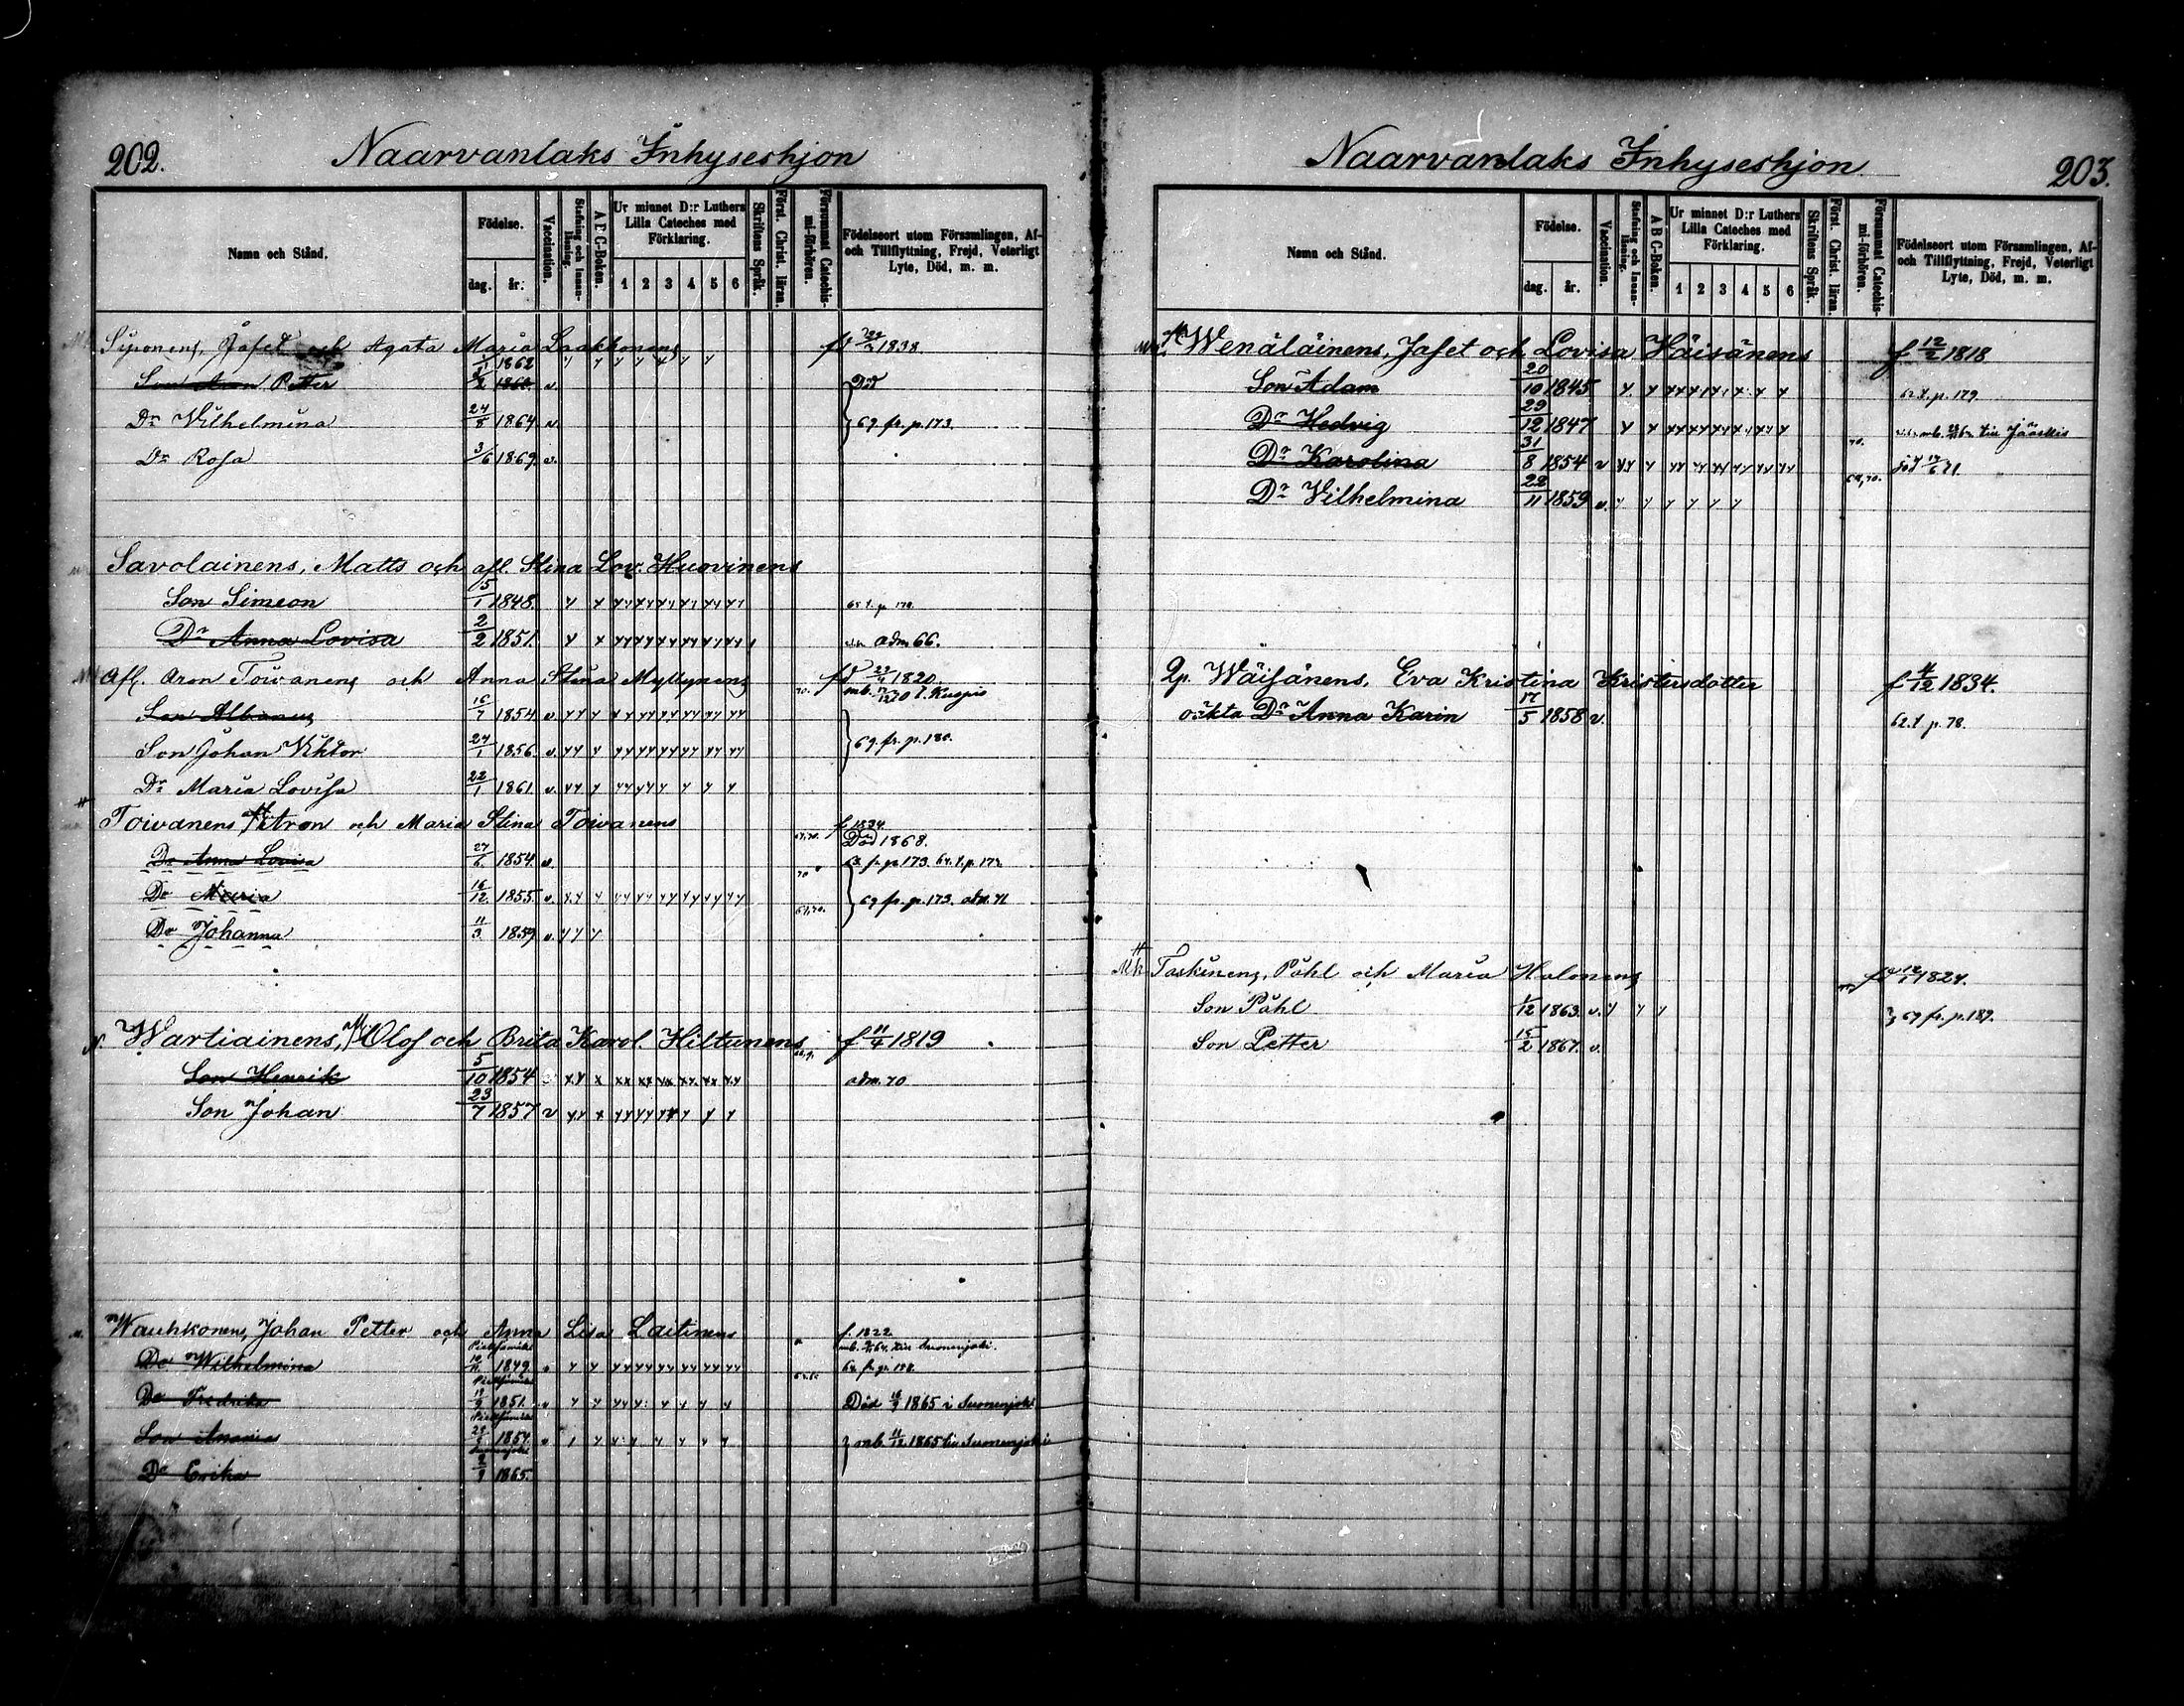 202.
Naarvanlaks Inhyseshjon
Namn och Stånd.
Födelse.
dag.
år.
Vaccination.
Stafning och Innanläsning.
A B C-Boken.
Ur minnet D:r Luthers Lilla Cateches med Förklaring.
1 2 3 4 5 6
Skriftens Språk.
Först. Christ. läran.
Försummat Catechismi-förhören.
Födelseort utom Församlingen, Af- och Tillflyttning, Frejd, Veterligt Lyte, Död, m. m.
Jafet och Agata Maria Laakkonens 1838.
1/1 1862
Son Aron Petter 1860 v. Död
Dr Vilhelmina 24/8 1864 v. 69. fr. p. 173.
Dr Rosa 3/6 1869 v.
Savolainens, Matts och afl. Stina Lov. Huovinens
Son Simeon 5/1 1848.
Dr Anna Lovisa 2/2 1851. adm 66.
Afl. Aron Toivanens och Anna Stina Myllynens 1820.
Son Albanus 16/7 1854 v.
Son Johan Viktor 24/1 1856. v. 69. fr. p. 180.
Dr Maria Lovisa 22/1 1861 v.
Toivanens Aron och Maria Stina Toivanens f. 1824
Död 1868.
Dr Anna Lovisa 27/6 1854 v. 63. fr. p. 173. 64. t. p. 173
Dr Maria 16/12 1855. v. 69 fr. p. 173. adm. 71
Dr Johanna 11/3 1859 v.
Wartiainens, Olof och Brita Karol. Hiltunens f 11/4 1819
Son Henrik 5/10 1854 adm. 70
Son Johan 23/7 1857 v
Wauhkonens, Johan Petter och Anna Lisa Laitinens f. 1822
Dr Wilhelmina 1849.
Dr Fredrika 19/9 1851. Död 16/9 1865 i Suonenjoki
Son Ananias 1854. mb. 11/12 1865 til Suonenjoki
Dr Erika 1865.
Naarvanlaks Inhyseshjon.
203.
Namn och Stånd.
Födelse.
dag.
år.
Vaccination.
Stafning och Innanläsning.
A B C-Boken.
Ur minnet D:r Luthers Lilla Cateches med Förklaring.
1 2 3 4 5 6
Skriftens Språk.
Först. Christ. läran.
Försummat Catechismi-förhören.
Födelseort utom Församlingen, Af- och Tillflyttning, Frejd, Veterligt Lyte, Död, m. m.
Wenäläinens, Jafet och Lovisa Häisänens f 12/2 1818
Son Adam 20/10 1845
Dr Hedvig 29/12 1847
Dr Karolina 31/8 1854 v
Dr Vilhelmina 22/11 1859 v.
Qp. Wäisänens, Eva Kristina Kristersdotter f 4/12 1834.
oäkta Dr Anna Karin 17/5 1858 v. 62. t p. 78.
Mh Taskinens, Påhl och Maria Halonens
Son Påhl 1/12 1863. v. 69 fr. p. 189.
Son Petter 15/2 1867. v.